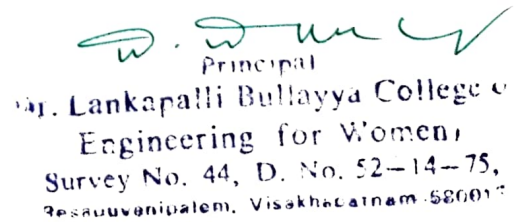 Principal
Dr. Lankapalli Bullayya College
Engineering for Women,
Survey No. 44, D. No. 52-14-75,
Resapuvanipalem, Visakhapatnam